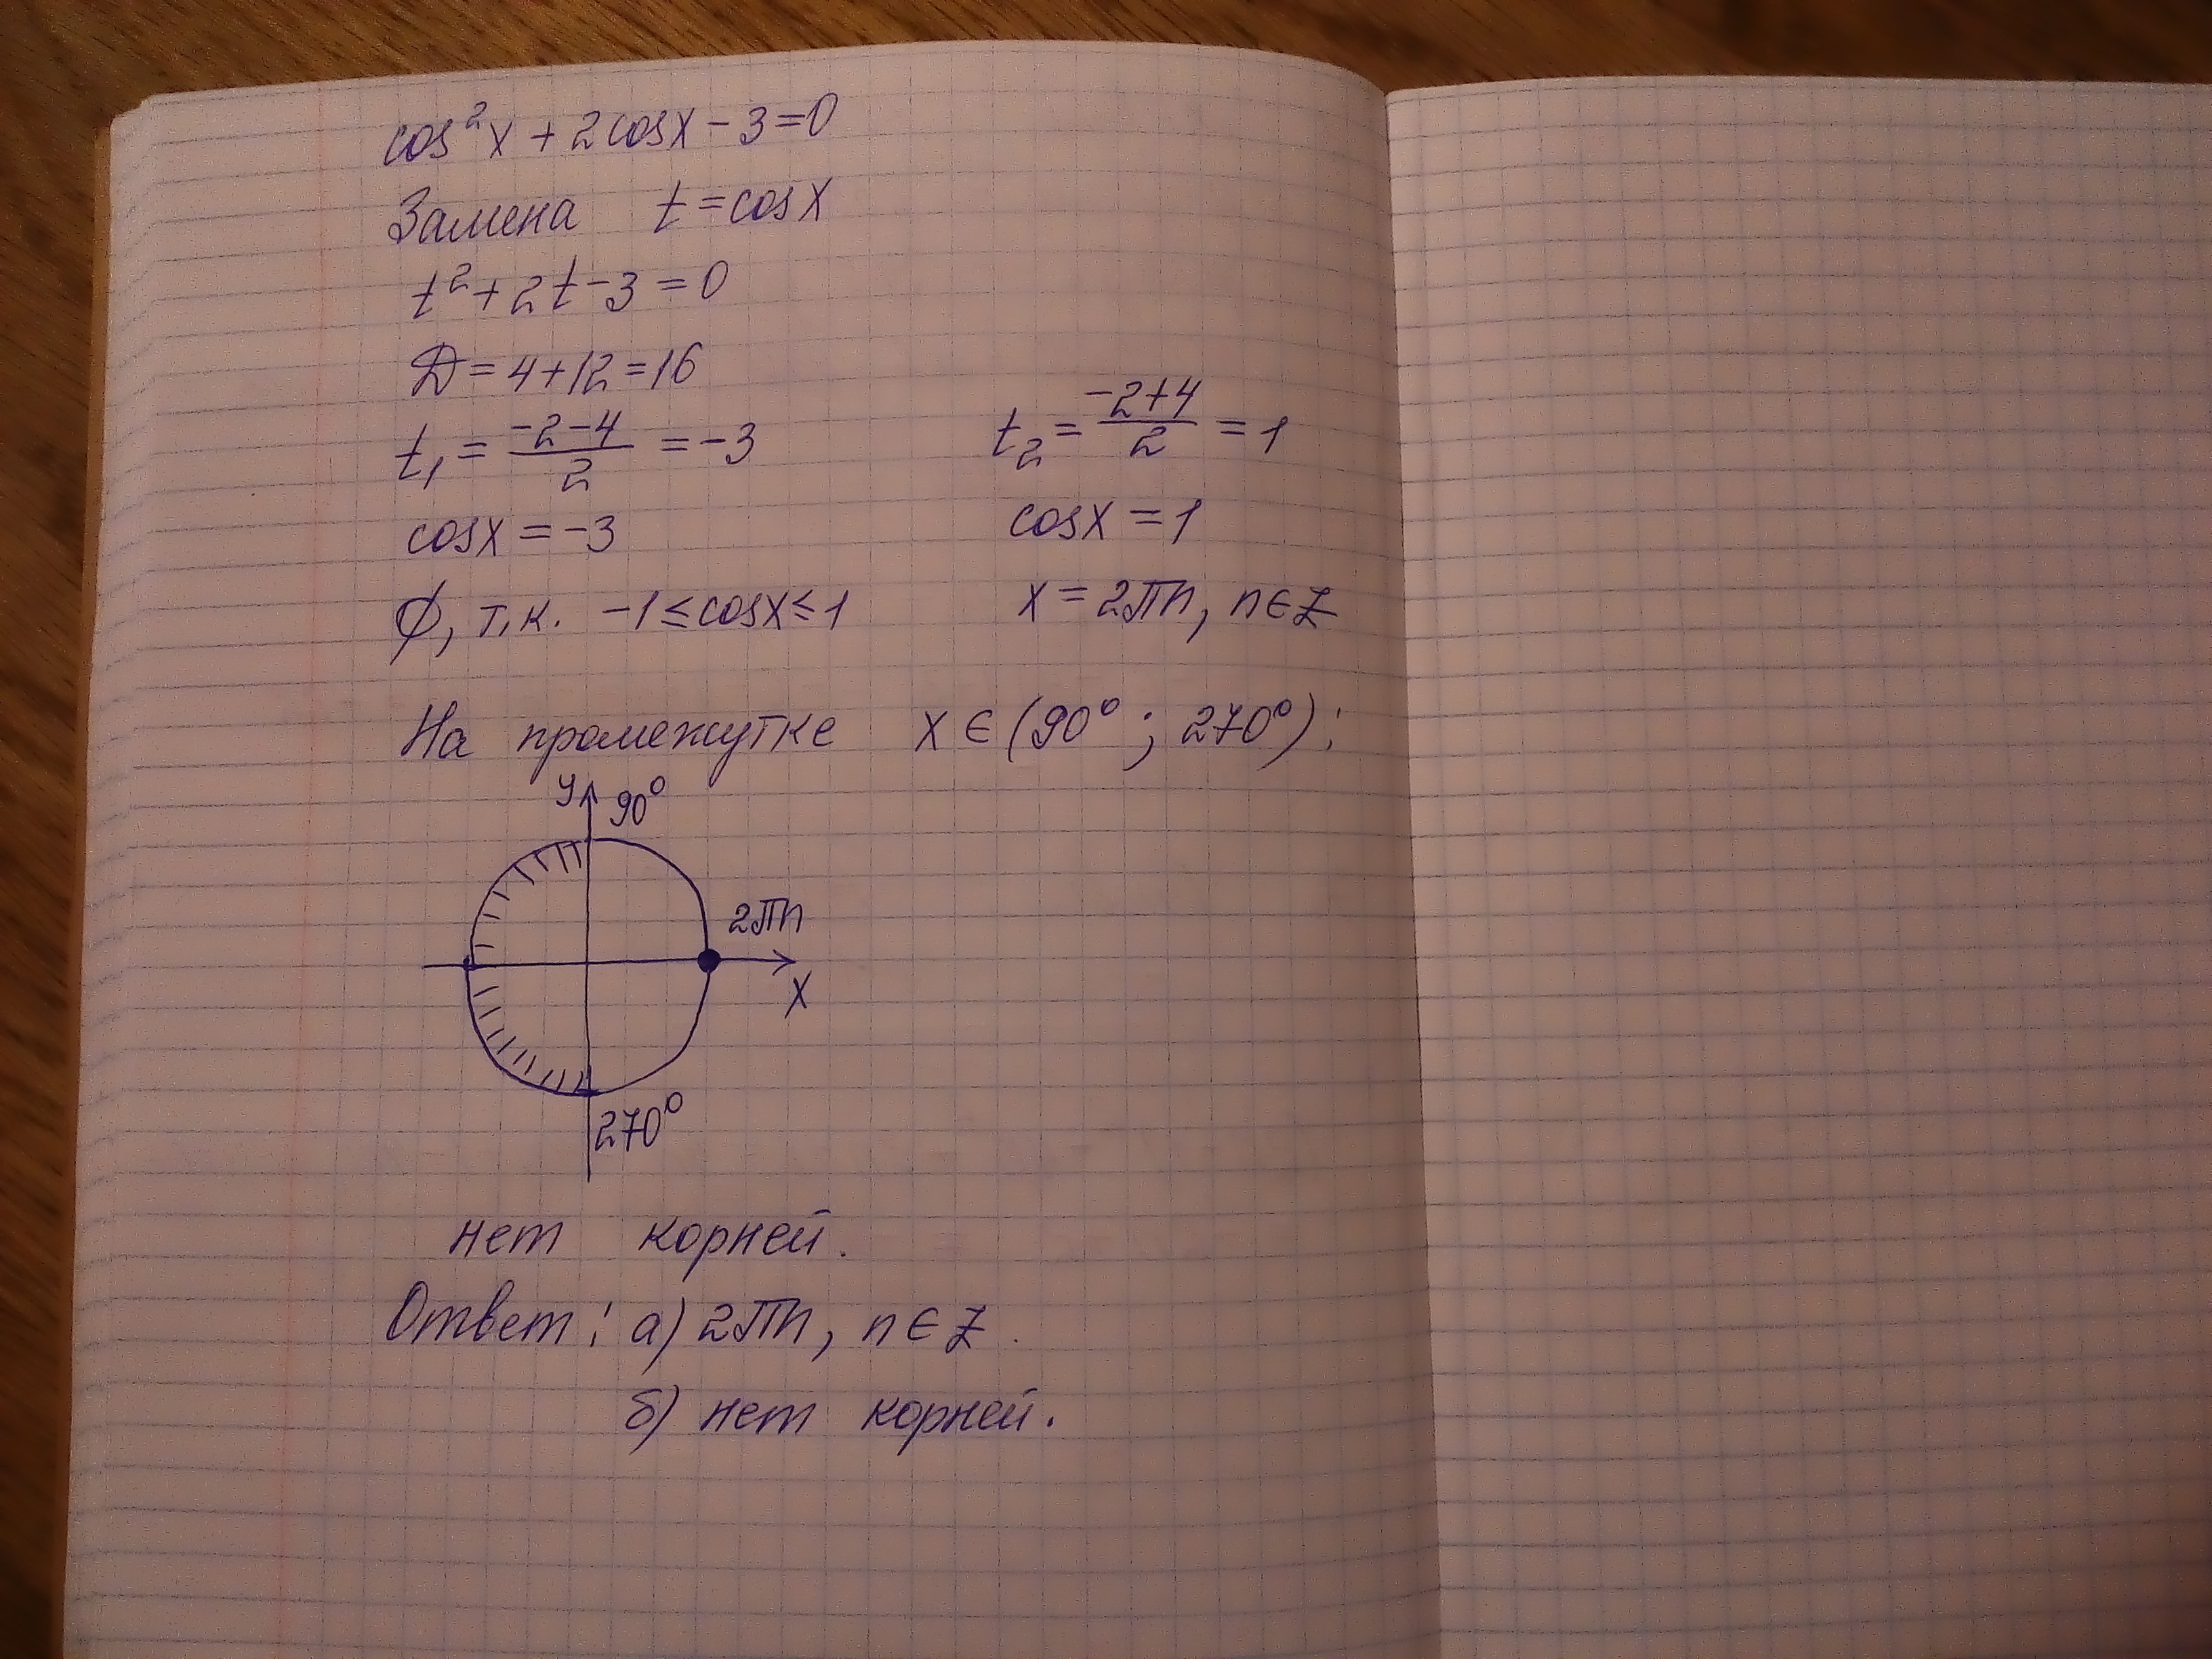 cos²x + 2cosx - 3 = 0
Замена t = cosx
t² + 2t - 3 = 0
D = 4 + 12 = 16
t₁ = (-2-4)/2 = -3 t₂ = (-2+4)/2 = 1
cosx = -3 cosx = 1
∅, т.к. -1 ≤ cosx ≤ 1 x = 2πn, n ∈ Z
На промежутке x ∈ (90°; 270°):
y 90°
2πn
x
270°
нет корней.
Ответ: а) 2πn, n ∈ Z.
б) нет корней.